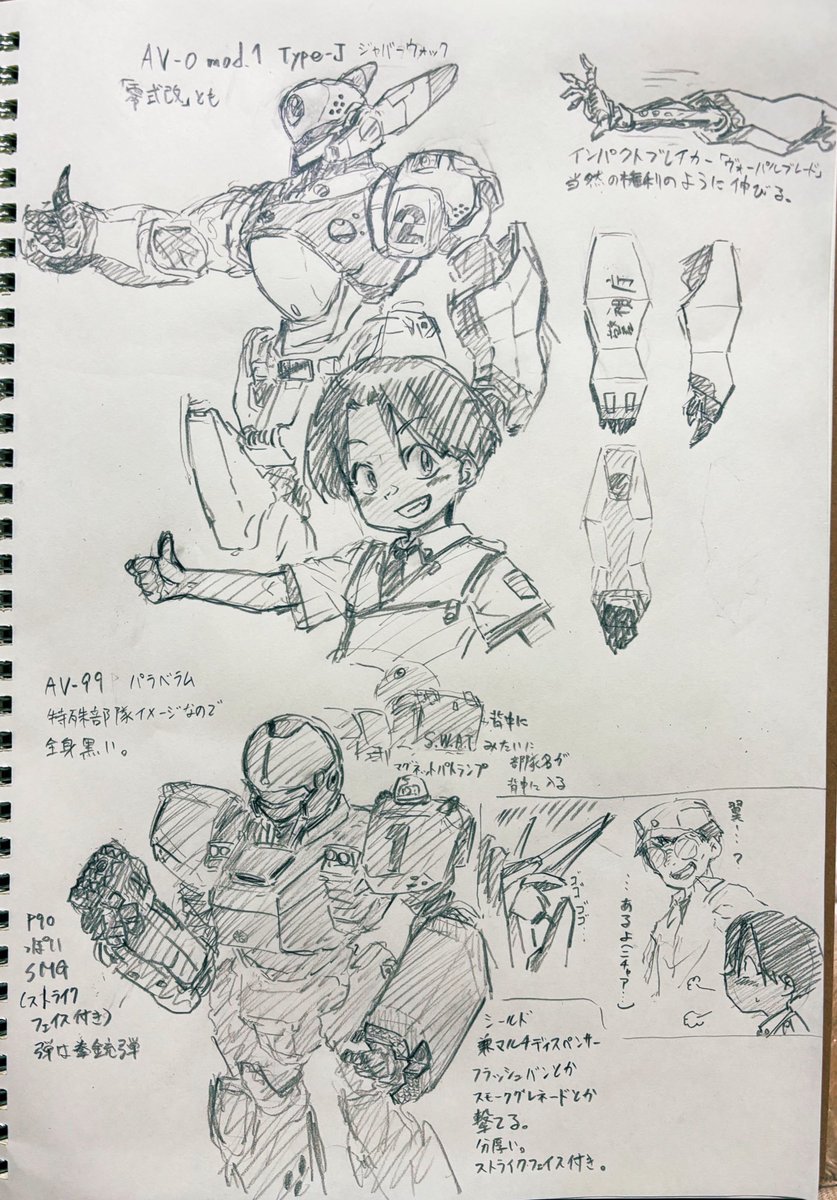 AV-0 mod.1 Type-J ジャバラウォック
「零式改」とも
2
インパクトブレイカー「ヴォーパルブレード」
当然の権利のように伸びる。
AV-99 パラベラム
特殊部隊イメージなので
全身黒い。
S.W.A.T
みたいに
背中に
部隊名が
背中に入る
マグネットパトランプ
1
POL
P90
っぽい
SMG
(ストライク
フェイス付き)
弾は拳銃弾
ゴゴゴゴ…
翼…?
…あるよ(ニチャア…)
シールド
兼マルチディスペンサー
フラッシュバンとか
スモークグレネードとか
撃てる。
分厚い。
ストライクフェイス付き。